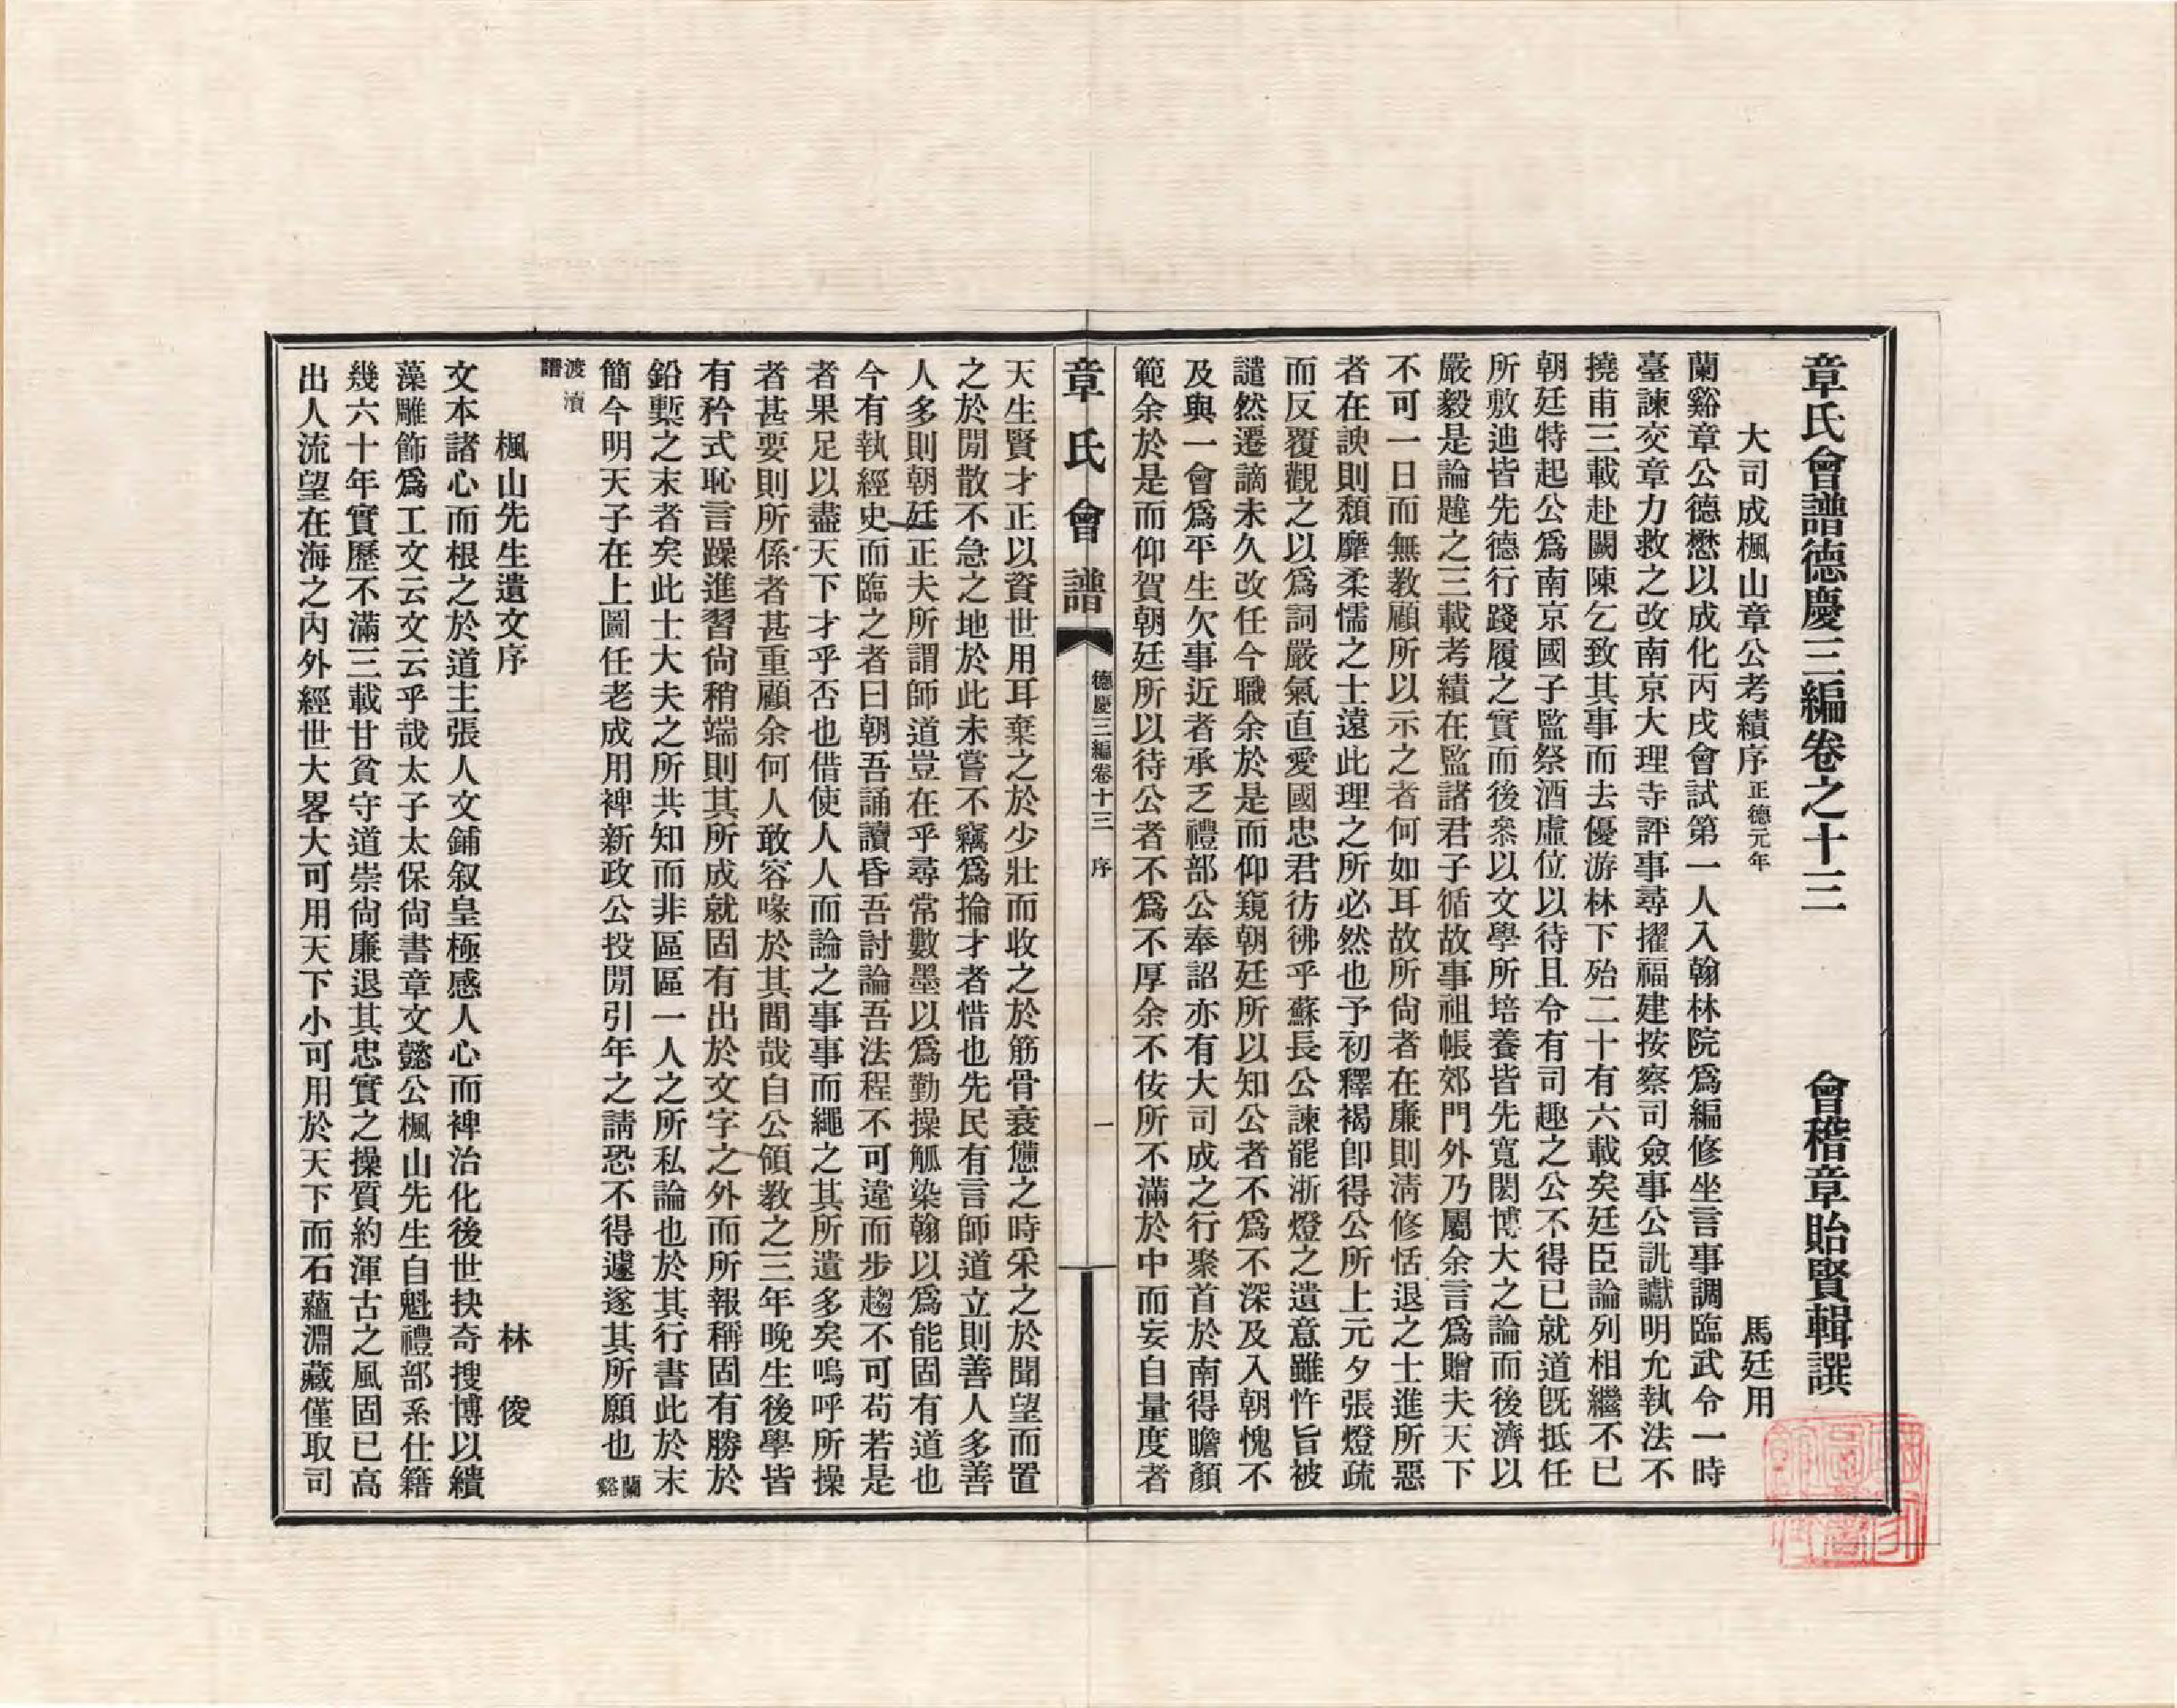 章氏會譜德慶三編卷之十三　會稽章貽賢輯譔
大司成楓山章公考績序正德元年　馬廷用
蘭谿章公德懋以成化丙戌會試第一人入翰林院爲編修坐言事調臨武令一時
臺諫交章力救之改南京大理寺評事尋擢福建按察司僉事公訊讞明允執法不
撓甫三載赴闕陳乞致其事而去優游林下殆二十有六載矣廷臣論列相繼不已
朝廷特起公爲南京國子監祭酒虛位以待且令有司趣之公不得已就道旣抵任
所敷迪皆先德行踐履之實而後叅以文學所培養皆先寬閎博大之論而後濟以
嚴毅是論韙之三載考績在監諸君子循故事祖帳郊門外乃屬余言爲贈夫天下
不可一日而無教顧所以示之者何如耳故所尙者在廉則淸修恬退之士進所惡
者在諛則頹靡柔懦之士遠此理之所必然也予初釋褐卽得公所上元夕張燈疏
而反覆觀之以爲詞嚴氣直愛國忠君彷彿乎蘇長公諫罷浙燈之遺意雖忤旨被
譴然遷謫未久改任今職余於是而仰窺朝廷所以知公者不爲不深及入朝愧不
及與一會爲平生欠事近者承乏禮部公奉詔亦有大司成之行聚首於南得瞻顏
範余於是而仰賀朝廷所以待公者不爲不厚余不佞所不滿於中而妄自量度者
章氏會譜　德慶三編卷十三　序　一
天生賢才正以資世用耳棄之於少壯而收之於筋骨衰憊之時采之於聞望而置
之於閒散不急之地於此未嘗不竊爲掄才者惜也先民有言師道立則善人多善
人多則朝廷正夫所謂師道豈在乎尋常數墨以爲勤操觚染翰以爲能固有道也
今有執經史而臨之者曰朝吾誦讀昏吾討論吾法程不可違而步趨不可苟若是
者果足以盡天下才乎否也借使人人而論之事事而繩之其所遺多矣嗚呼所操
者甚要則所係者甚重顧余何人敢容喙於其間哉自公領教之三年晚生後學皆
有矜式恥言躁進習尙稍端則其所成就固有出於文字之外而所報稱固有勝於
鉛槧之末者矣此士大夫之所共知而非區區一人之所私論也於其行書此於末
簡今明天子在上圖任老成用裨新政公投閒引年之請恐不得遽遂其所願也蘭谿
渡瀆譜
楓山先生遺文序　林俊
文本諸心而根之於道主張人文鋪叙皇極感人心而裨治化後世抉奇搜博以繢
藻雕飾爲工文云文云乎哉太子太保尙書章文懿公楓山先生自魁禮部系仕籍
幾六十年實歷不滿三載甘貧守道崇尙廉退其忠實之操質約渾古之風固已高
出人流望在海之內外經世大畧大可用天下小可用於天下而石蘊淵藏僅取司